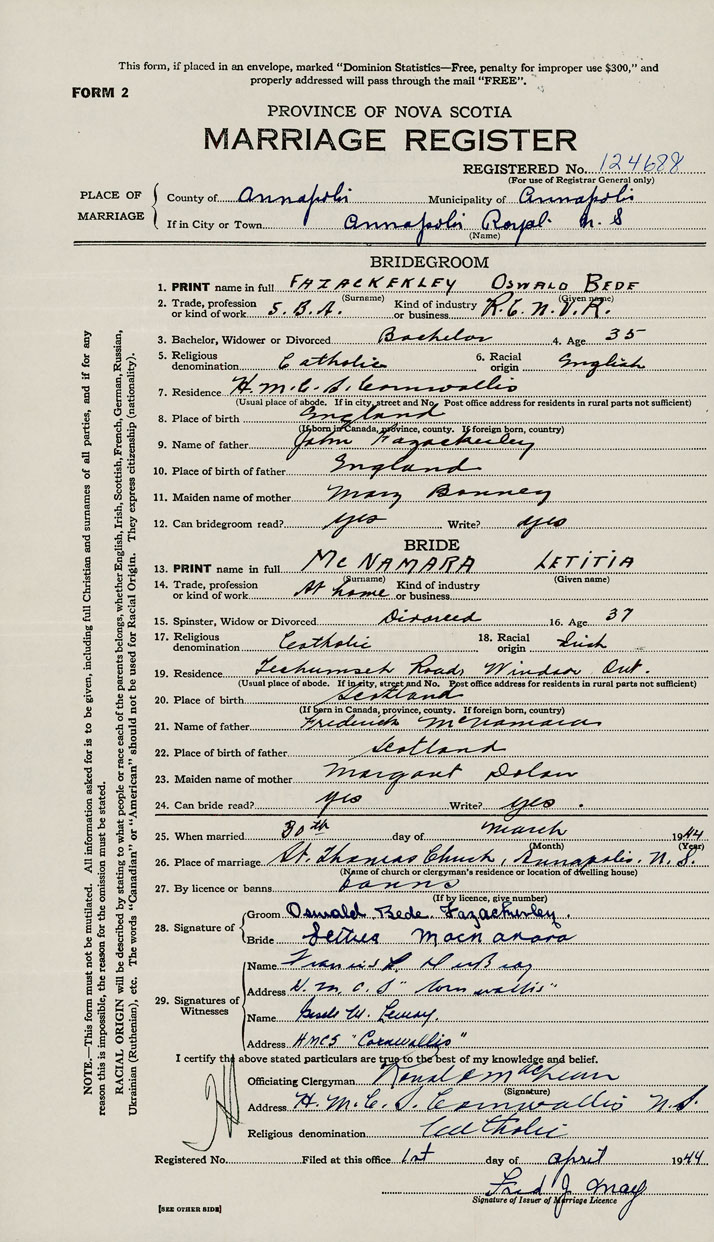 This form, if placed in an envelope, marked "Dominion Statistics—Free, penalty for improper use $300," and
properly addressed will pass through the mail "FREE".
FORM 2
PROVINCE OF NOVA SCOTIA
MARRIAGE REGISTER
REGISTERED No. 124688
(For use of Registrar General only)
PLACE OF MARRIAGE
County of Annapolis Municipality of Annapolis
If in City or Town Annapolis Royal N. S
(Name)
BRIDEGROOM
1. PRINT name in full FAZACKERLEY OSWALD BEDE
(Surname) (Given name)
2. Trade, profession or kind of work S. B. A. Kind of industry or business R. C. N. V. R.
3. Bachelor, Widower or Divorced Bachelor 4. Age 35
5. Religious denomination Catholic 6. Racial origin English
7. Residence H. M. C. S. Cornwallis
(Usual place of abode. If in city, street and No. Post office address for residents in rural parts not sufficient)
8. Place of birth England
(If born in Canada, province, county. If foreign born, country)
9. Name of father John Fazackerley
10. Place of birth of father England
11. Maiden name of mother Mary Bonney
12. Can bridegroom read? yes Write? yes
BRIDE
13. PRINT name in full MCNAMARA LETITIA
(Surname) (Given name)
14. Trade, profession or kind of work At home Kind of industry or business
15. Spinster, Widow or Divorced Divorced 16. Age 37
17. Religious denomination Catholic 18. Racial origin Irish
19. Residence Techumseh Road, Windsor Ont.
(Usual place of abode. If in city, street and No. Post office address for residents in rural parts not sufficient)
20. Place of birth Scotland
(If born in Canada, province, county. If foreign born, country)
21. Name of father Frederick McNamara
22. Place of birth of father Scotland
23. Maiden name of mother Margaret Dolan
24. Can bride read? yes Write? yes.
25. When married 30th day of March 1944
(Month) (Year)
26. Place of marriage St. Thomas Church, Annapolis. N. S.
(Name of church or clergyman's residence or location of dwelling house)
27. By licence or banns banns
(If by licence, give number)
28. Signature of
Groom Oswald Bede Fazackerley.
Bride
29. Signatures of Witnesses
Name Francis
Address H. M. C. S "Cornwallis"
Name
Address HMCS "Cornwallis"
I certify the above stated particulars are true to the best of my knowledge and belief.
Officiating Clergyman Ronald
(Signature)
Address H. M. C. S. Cornwallis N.S.
Religious denomination Catholic
Registered No. Filed at this office 1st day of April 1944
Fred J. May
Signature of Issuer of Marriage Licence
[SEE OTHER SIDE]
NOTE.—This form must not be mutilated. All information asked for is to be given, including full Christian and surnames of all parties, and if for any
reason this is impossible, the reason for the omission must be stated.
RACIAL ORIGIN will be described by stating to what people or race each of the parents belongs, whether English, Irish, Scottish, French, German, Russian,
Ukrainian (Ruthenian), etc. The words "Canadian" or "American" should not be used for Racial Origin. They express citizenship (nationality).